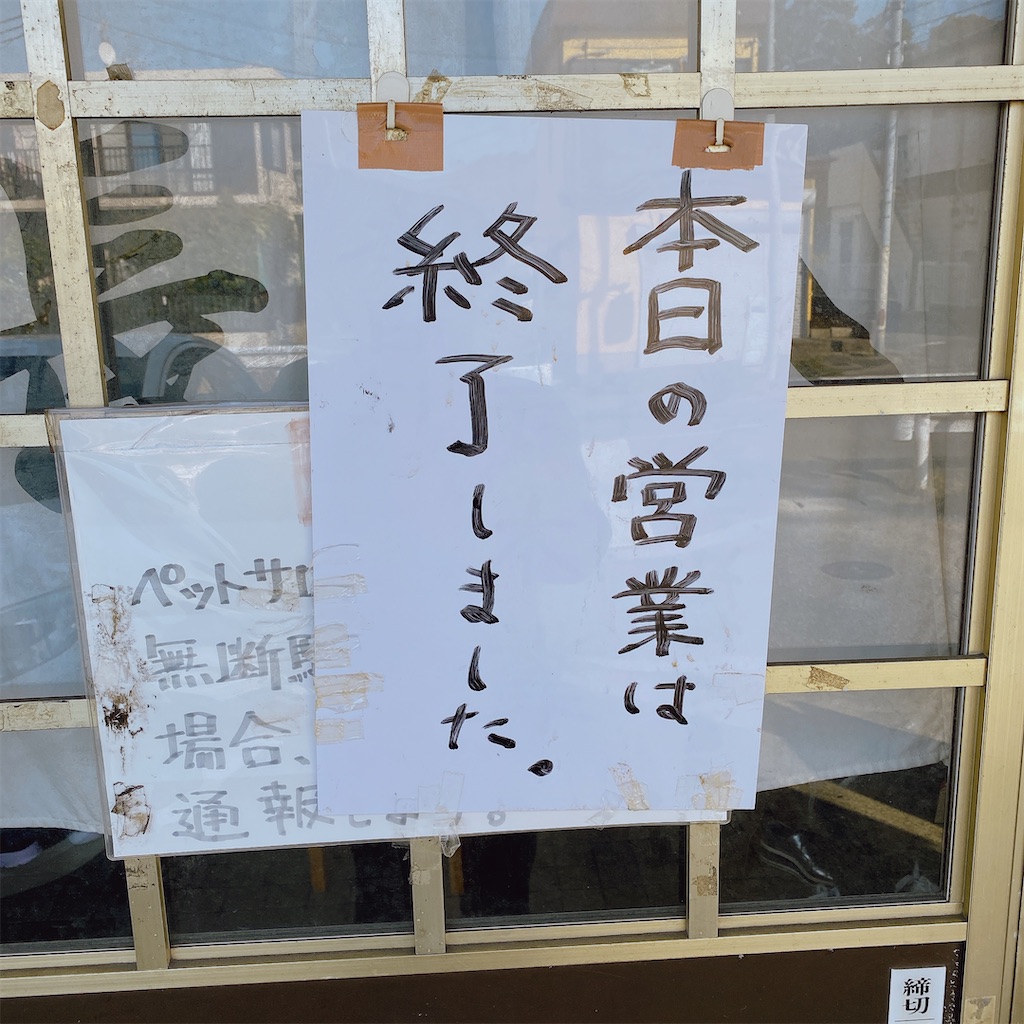 本日の営業は
終了しました。
ペットサロ
無断駐
場合、
通報します。
締切